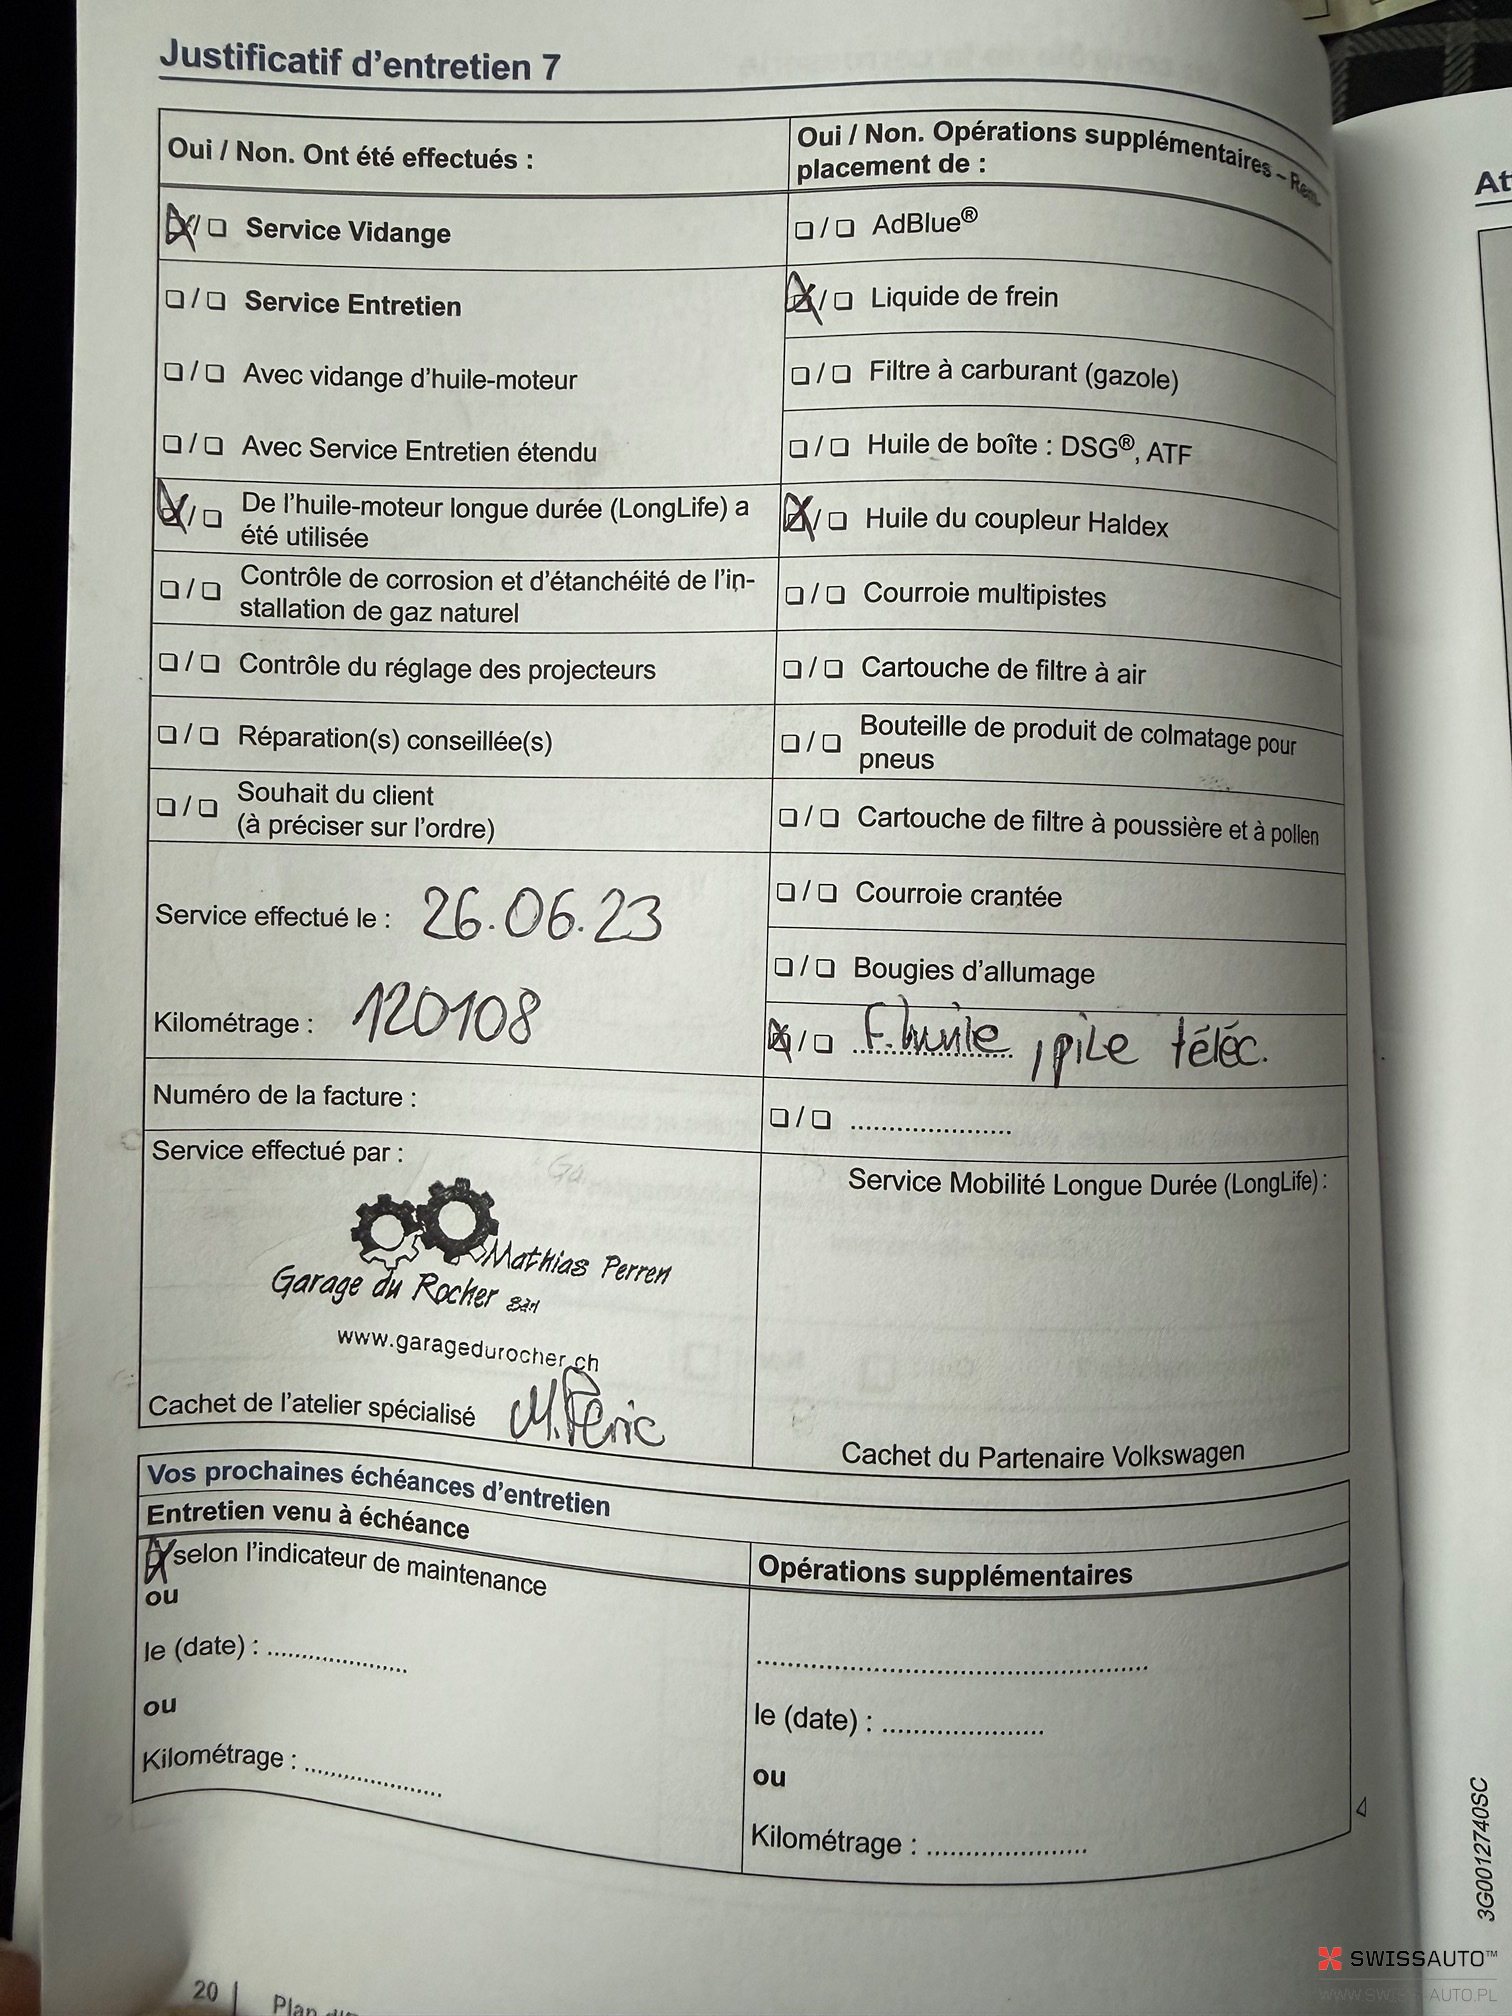 Justificatif d'entretien 7
Oui / Non. Ont été effectués :
☒/❏ Service Vidange
❏/❏ Service Entretien
❏/❏ Avec vidange d'huile-moteur
❏/❏ Avec Service Entretien étendu
☒/❏ De l'huile-moteur longue durée (LongLife) a
été utilisée
❏/❏ Contrôle de corrosion et d'étanchéité de l'in-
stallation de gaz naturel
❏/❏ Contrôle du réglage des projecteurs
❏/❏ Réparation(s) conseillée(s)
❏/❏ Souhait du client
(à préciser sur l'ordre)
Service effectué le : 26.06.23
Kilométrage : 120108
Numéro de la facture :
Service effectué par :
Mathias Perren
Garage du Rocher Sàrl
www.garagedurocher.ch
Cachet de l'atelier spécialisé M. Peric
Oui / Non. Opérations supplémentaires – Rem-
placement de :
❏/❏ AdBlue®
☒/❏ Liquide de frein
❏/❏ Filtre à carburant (gazole)
❏/❏ Huile de boîte : DSG®, ATF
☒/❏ Huile du coupleur Haldex
❏/❏ Courroie multipistes
❏/❏ Cartouche de filtre à air
❏/❏ Bouteille de produit de colmatage pour
pneus
❏/❏ Cartouche de filtre à poussière et à pollen
❏/❏ Courroie crantée
❏/❏ Bougies d'allumage
☒/❏ F. huile, pile téléc.
❏/❏ ......................
Service Mobilité Longue Durée (LongLife) :
Cachet du Partenaire Volkswagen
Vos prochaines échéances d'entretien
Entretien venu à échéance
☒ selon l'indicateur de maintenance
ou
le (date) : ......................
ou
Kilométrage : ......................
Opérations supplémentaires
......................
le (date) : ......................
ou
Kilométrage : ......................
20
Plan
At
3G0012740SC
SWISSAUTO™
WWW.SWISSAUTO.PL